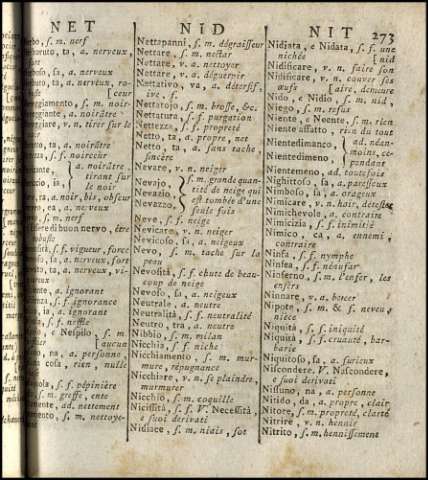 NET NID NIT 273
s. m. nerf
a. nerveux,
fort
a. nerveux
ta, a. nerveux, ro-
[ceur
s. m. noir-
a. noirâtre
v. n. tirer sur le
ta, a. noirâtre
s. f. noirceur
a. noirâtre,
tirant sur
le noir
ta, a. noir, bis, obscur
ca, a. nerveux
s. m. nerf
di buon nervo, être
s. f. vigueur, force
sa, a. nerveux, fort
ta, a. nerveux, vi-
a. ignorant
s. f. ignorance
ia, a. ignorant
s. f. neffle
e Nespilo { s. m
na, a. personne,
cosa, rien, nulle
s. f. pépinière
s. m. greffe, ente
ad. nettement
s. m. nettoye-
Nettapanni, s. m. dégraisseur
Nettare, s. m. nectar
Nettare, v. a. nettoyer
Nettare, v. a. déguerpir
Nettativo, va, a. détersif,
ive, f.
Nettatojo, s. m. brosse, &c.
Nettatura, s. f. purgation
Nettezza, s. f. propreté
Netto, ta, a. propre, net
Netto, ta, a. sans tache,
sincère
Nevare, v. n. neiger
Nevajo,
Nevazio,
Nevazzo,
s. m. grande quan-
tité de neige qui
est tombée d'une
seule fois
Neve, s. f. neige
Nevicare, v. n. neiger
Nevicoso, sa, a. neigeux
Nevo, s. m. tache sur la
peau
Nevosità, s. f. chute de beau-
coup de neige
Nevoso, sa, a. neigeux
Neutrale, a. neutre
Neutralità, s. f. neutralité
Neutro, tra, a. neutre
Nibbio, s. m. milan
Nicchia, s. f. niche
Nicchiamento, s. m. mur-
mure, répugnance
Nicchiare, v. n. se plaindre,
murmurer
Nicchio, s. m. coquille
Nicistità, s. f. V. Necessità,
e suoi derivati
Nidiace, s. m. niais, sot
Nidiata, e Nidata, s. f. une
nichée [nid
Nidificare, v. n. faire son
Nidificare, v. n. couver ses
œufs [aire, demeure
Nido, e Nidio, s. m. nid,
Niego, s. m. refus
Niente, e Neente, s. m. rien
Niente affatto, rien du tout
Nientedimanco,
Nientedimeno,
ad. néan-
moins, ce-
pendant
Nientemeno, ad. toutefois
Nighittoso, sa, a. paresseux
Nimboso, sa, a. orageux
Nimicare, v. n. haïr, détester
Nimichevole, a. contraire
Nimicizia, s. f. inimitié
Nimico, ca, a. ennemi,
contraire
Ninfa, s. f. nymphe
Ninfea, s. f. nénufar
Ninferno, s. m. l'enfer, les
enfers
Ninnare, v. a. bercer
Nipote, s. m. & f. neveu,
nièce
Niquità, s. f. iniquité
Niquità, s. f. cruauté, bar-
barie
Niquitoso, sa, a. furieux
Niscondere. V. Nascondere,
e suoi derivati
Nissuno, na, a. personne
Nitido, da, a. propre, clair
Nitore, s. m. propreté, clarté
Nitrire, v. n. hennir
Nitrito, s. m. hennissement